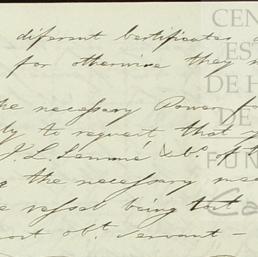 diferent Certificates
for otherwise they
the necessary Power
to request that
J. L. Lemmé & Co. of
the necessary
vessel being but
obt. Servant —
CEN
ES
DE H
DE
FUN